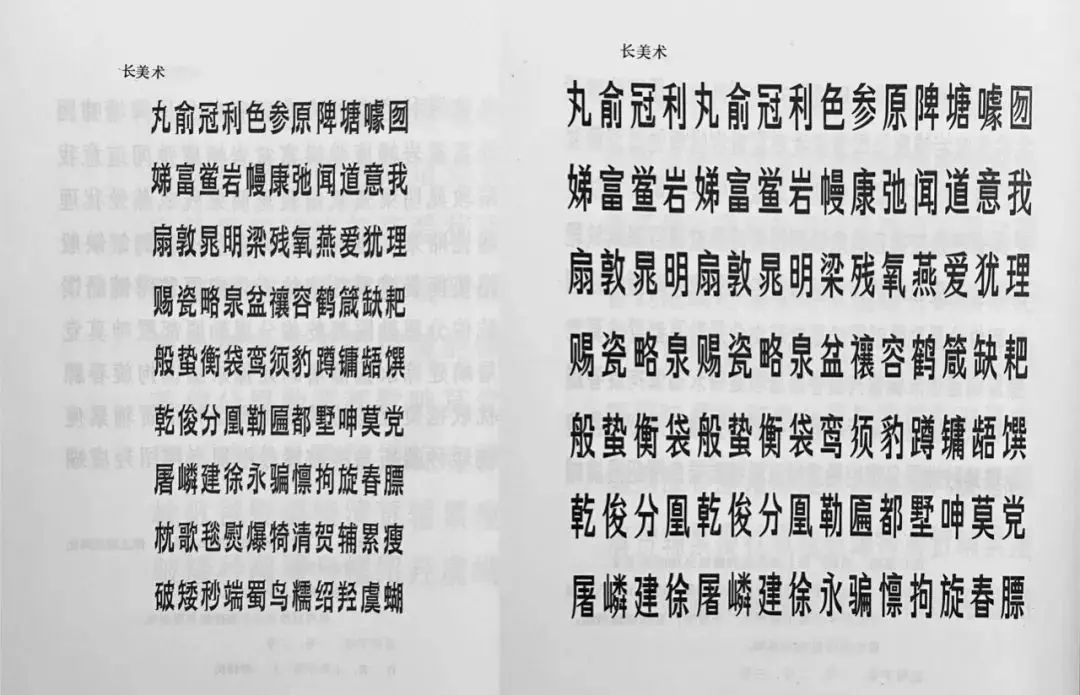 长美术
丸俞冠利色参原陴塘噱囫
娣富鲎岩幔康弛闻道意我
扇敦晁明梁残氧燕爱犹理
赐瓷略泉盆禳容鹤箴缺耙
般蛰衡袋鸾须豹蹲镛龉馔
乾俊分凰勒匾都墅呻莫党
屠嶙建徐永骗懔拘旋春膘
枕歌毯熨爆犄清贺辅累瘦
破矮秒端蜀鸟糯绍羟虞蝴
长美术
丸俞冠利丸俞冠利色参原陴塘噱囫
娣富鲎岩娣富鲎岩幔康弛闻道意我
扇敦晁明扇敦晁明梁残氧燕爱犹理
赐瓷略泉赐瓷略泉盆禳容鹤箴缺耙
般蛰衡袋般蛰衡袋鸾须豹蹲镛龉馔
乾俊分凰乾俊分凰勒匾都墅呻莫党
屠嶙建徐屠嶙建徐永骗懔拘旋春膘